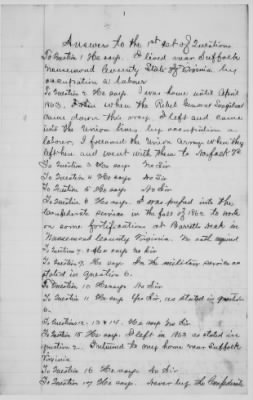 1
Answer to the 1st Set of Questions
To Question 1 He says. I lived near Suffolk
Nansemond County State of Virginia by
occupation a laborer
To Question 2 He says. I was home until April
1863. when the Rebel General
came down this way. I left and came
into the Union lines by occupation a
laborer, I followed the Union Army when they
left here and went with them to Norfolk Va
To Question 3 He says No Sir
To Question 4 He says No Sir
To Question 5 He says No Sir
To Question 6 He says. I was forced into the
Confederate service in the fall of 1862 to work
on some fortifications at Neck in
Nansemond County Virginia. No oath against
To Question 7. No Sir
To Question 9. He says In the military service as
stated in question 6.
To Question 10 He says No Sir
To Question 11 He says Yes Sir, as stated in question
6.
To Question 12, 13 & 14. He says No Sir
To Question 15 He says. I left in 1863 as stated in
question 2. I returned to my home near Suffolk
Virginia
To Question 16 He says No Sir
To Question 17 He says. Never by the Confederate